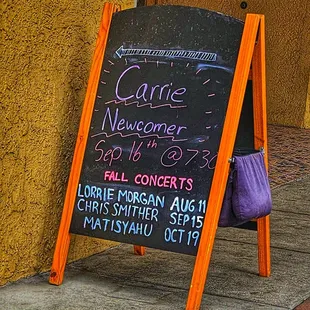 Carrie
Newcomer
Sep. 16th @ 7:30
FALL CONCERTS
LORRIE MORGAN AUG 11
CHRIS SMITHER SEP 15
MATISYAHU OCT 19